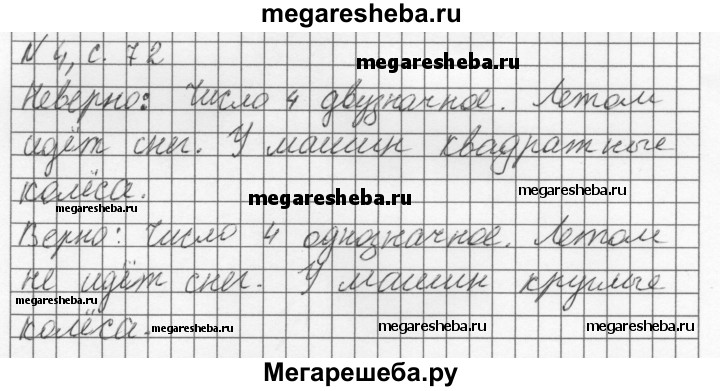 megaresheba.ru
N 4, с. 72
megaresheba.ru
Неверно: Число 4 двузначное. Летом
идёт снег. У машин квадратные
колёса.
megaresheba.ru
megaresheba.ru
megaresheba.ru
Верно: Число 4 однозначное. Летом
не идёт снег. У машин круглые
megaresheba.ru
колёса.
megaresheba.ru
megaresheba.ru
megaresheba.ru
Мегарешеба.ру